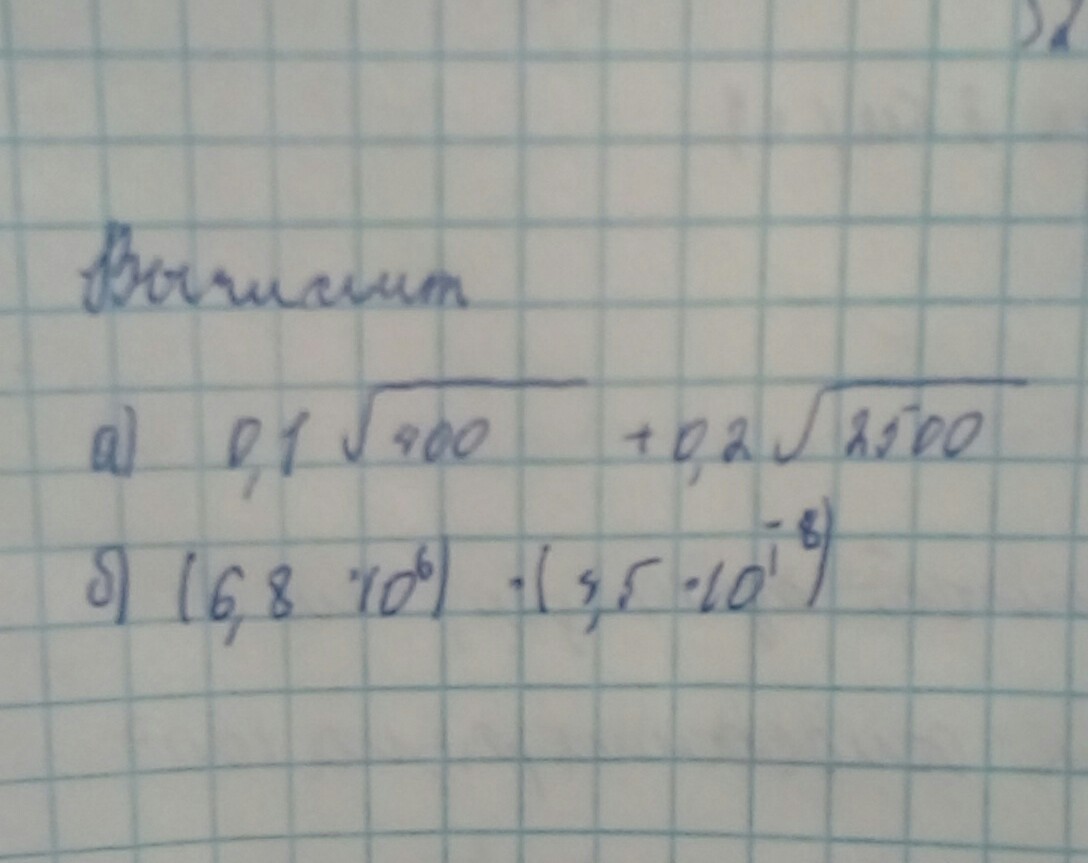 Вычислит
а) 0,1 √400 + 0,2 √2500
б) (6,8 · 10⁶) · (4,5 · 10⁻⁸)